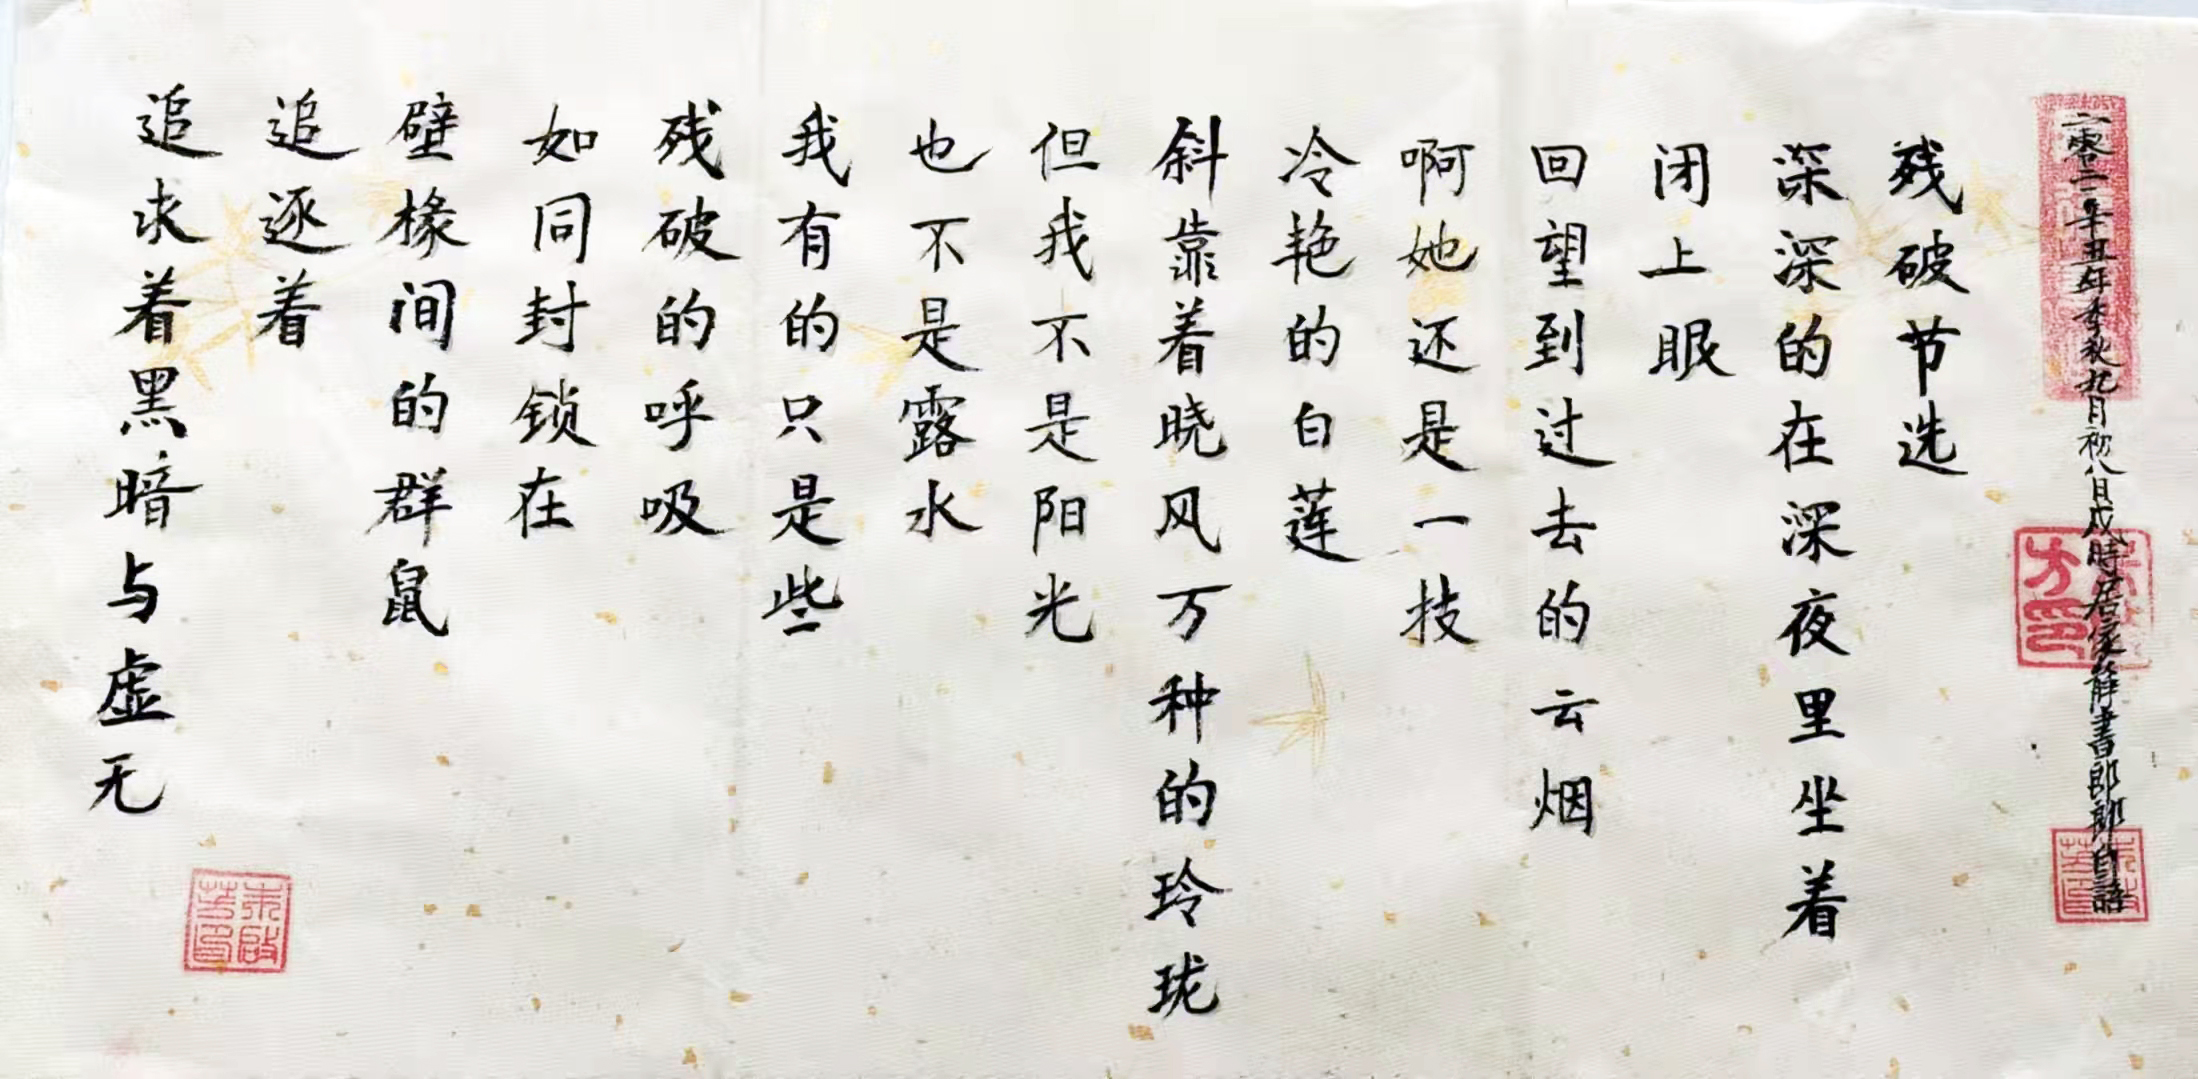 二零二一年辛丑年季秋九月初八日戌時居家静書郎郎自語
残破节选
深深的在深夜里坐着
闭上眼
回望到过去的云烟
啊她还是一技
冷艳的白莲
斜靠着晓风万种的玲珑
但我不是阳光
也不是露水
我有的只是些
残破的呼吸
如同封锁在
壁椽间的群鼠
追逐着
追求着黑暗与虚无